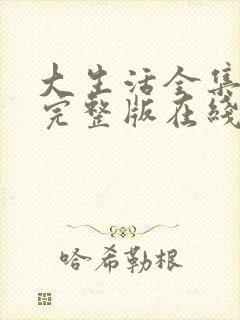 大生活全集
完整版在线
哈希勒根